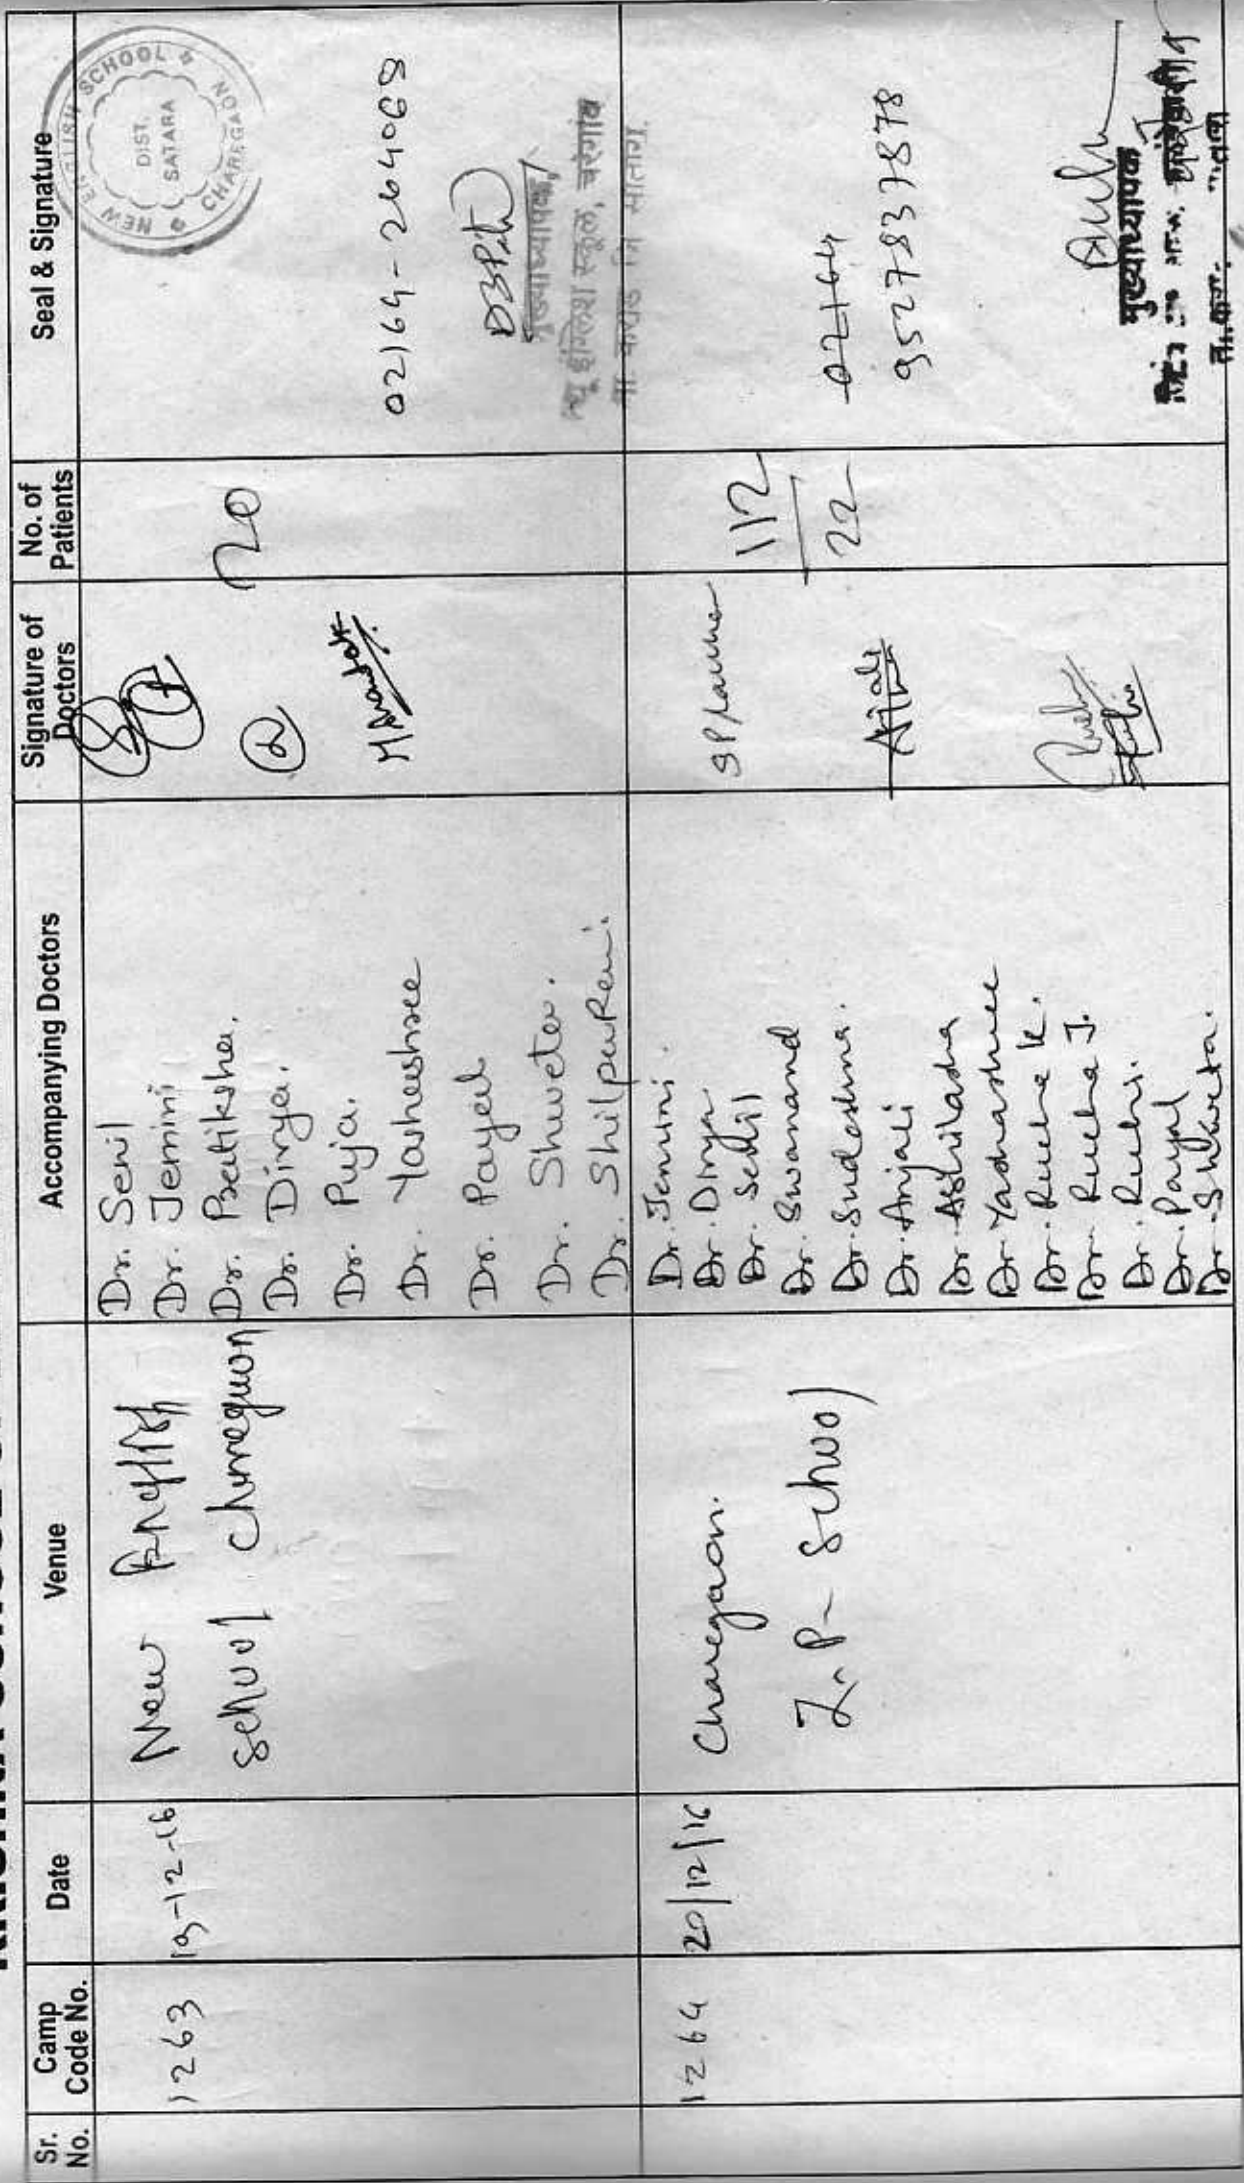 Sr. No.
Camp Code No.
Date
Venue
Accompanying Doctors
Signature of Doctors
No. of Patients
Seal & Signature
1263
19-12-16
New English
School Charegaon
Dr. Senil
Dr. Jemini
Dr. Pratiksha.
Dr. Divya.
Dr. Puja.
Dr. Yasheshree
Dr. Payal
Dr. Shweta.
Dr. Shilpa Rani.
20
NEW ENGLISH SCHOOL
CHAREGAON
DIST.
SATARA
02164-264069
1264
20/12/16
Charegaon.
Z.P. School
Dr. Jemini.
Dr. Divya
Dr. Senil
Dr. Swanand
Dr. Sudeshna.
Dr. Anjali
Dr. Abhilasha
Dr. Yashashree
Dr. Rucha K.
Dr. Rucha J.
Dr. Ruchi.
Dr. Payal
Dr. Shweta.
112
22
02164
9527837878
मुख्याध्यापक